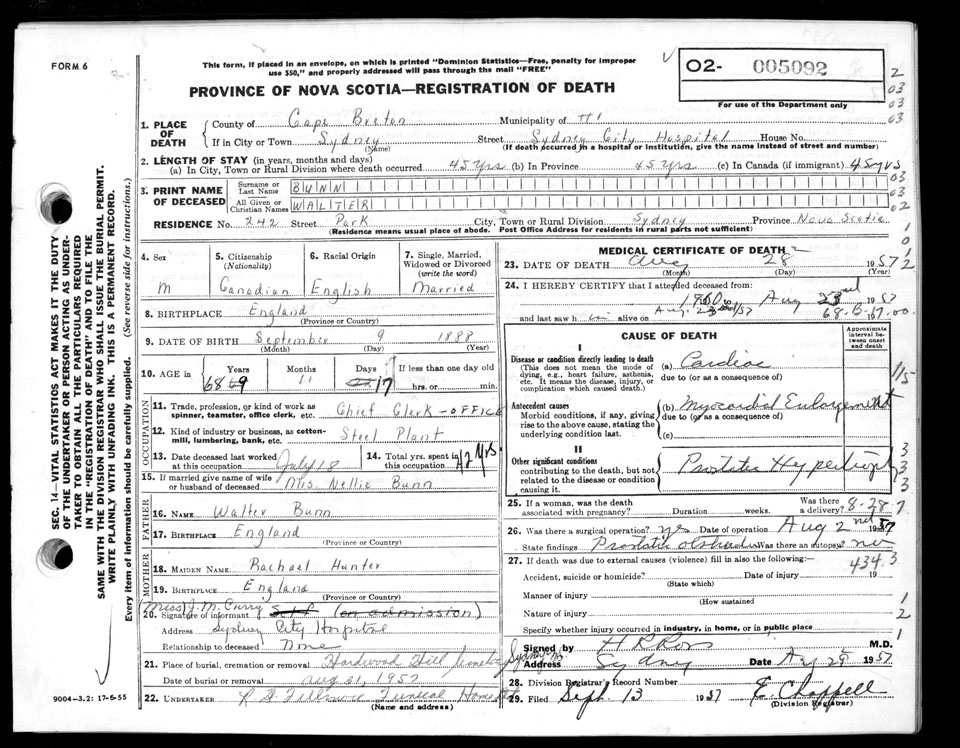 FORM 6
This form, if placed in an envelope, on which is printed "Dominion Statistics—Free, penalty for improper
use $50," and properly addressed will pass through the mail "FREE"
02- 005092
For use of the Department only
PROVINCE OF NOVA SCOTIA—REGISTRATION OF DEATH
1. PLACE OF DEATH
County of Cape Breton Municipality of
If in City or Town Sydney Street Sydney City Hospital House No.
(Name) (If death occurred in a hospital or institution, give the name instead of street and number)
2. LENGTH OF STAY (in years, months and days)
(a) In City, Town or Rural Division where death occurred 45 yrs (b) In Province 45 yrs (c) In Canada (if immigrant) 45 yrs
3. PRINT NAME OF DECEASED
Surname or Last Name BUNN
All Given or Christian Names WALTER
RESIDENCE No. 242 Street Park City, Town or Rural Division Sydney Province Nova Scotia
(Residence means usual place of abode. Post Office Address for residents in rural parts not sufficient)
4. Sex 5. Citizenship (Nationality) 6. Racial Origin 7. Single, Married, Widowed or Divorced (write the word)
M Canadian English Married
8. BIRTHPLACE England
(Province or Country)
9. DATE OF BIRTH September 9 1888
(Month) (Day) (Year)
10. AGE in Years Months Days If less than one day old
68 11 17 hrs. or min.
OCCUPATION
11. Trade, profession, or kind of work as spinner, teamster, office clerk, etc. Chief Clerk - OFFICE
12. Kind of industry or business, as cotton-mill, lumbering, bank, etc. Steel Plant
13. Date deceased last worked at this occupation July 18 14. Total yrs. spent in this occupation 42 Yrs
15. If married give name of wife or husband of deceased Mrs. Nellie Bunn
FATHER
16. NAME Walter Bunn
17. BIRTHPLACE England
(Province or Country)
MOTHER
18. MAIDEN NAME Rachael Hunter
19. BIRTHPLACE England
(Province or Country)
(Miss) J. M. Curry
20. Signature of informant Self (on admission)
Address Sydney City Hospital
Relationship to deceased None
21. Place of burial, cremation or removal Hardwood Hill Cemetery Sydney
Date of burial or removal Aug 31, 1957
22. UNDERTAKER Fillmore Funeral Home
(Name and address)
MEDICAL CERTIFICATE OF DEATH
23. DATE OF DEATH Aug 28 1957
(Month) (Day) (Year)
24. I HEREBY CERTIFY that I attended deceased from:
Aug 1957
and last saw him alive on Aug.
CAUSE OF DEATH
Approximate interval between onset and death
I
Disease or condition directly leading to death
(This does not mean the mode of dying, e.g., heart failure, asthenia, etc. It means the disease, injury, or complication which caused death.)
(a) Cardiac
due to (or as a consequence of)
Antecedent causes
Morbid conditions, if any, giving rise to the above cause, stating the underlying condition last.
(b) Myocardial Enlargement
due to (or as a consequence of)
(c)
II
Other significant conditions
contributing to the death, but not related to the disease or condition causing it.
Prostatic Hypertrophy
25. If a woman, was the death associated with pregnancy? Duration weeks. Was there a delivery?
8-28-7
26. Was there a surgical operation? yes Date of operation Aug 2nd 1957
State findings Prostatic Was there an autopsy? no
27. If death was due to external causes (violence) fill in also the following:—
434.3
Accident, suicide or homicide? Date of injury 19
(State which)
Manner of injury
(How sustained
Nature of injury
Specify whether injury occurred in industry, in home, or in public place
Signed by H R Ross M.D.
Address Sydney Date Aug 29 1957
28. Division Registrar's Record Number
29. Filed Sept. 13 1957 E. Chappell
(Division Registrar)
SEC. 14—VITAL STATISTICS ACT MAKES IT THE DUTY
OF THE UNDERTAKER OR PERSON ACTING AS UNDER-
TAKER TO OBTAIN ALL THE PARTICULARS REQUIRED
IN THE "REGISTRATION OF DEATH" AND TO FILE THE
SAME WITH THE DIVISION REGISTRAR WHO SHALL ISSUE THE BURIAL PERMIT.
WRITE PLAINLY WITH UNFADING INK. THIS IS A PERMANENT RECORD.
Every item of information should be carefully supplied. (See reverse side for instructions.)
9004—3.2: 17-6-55